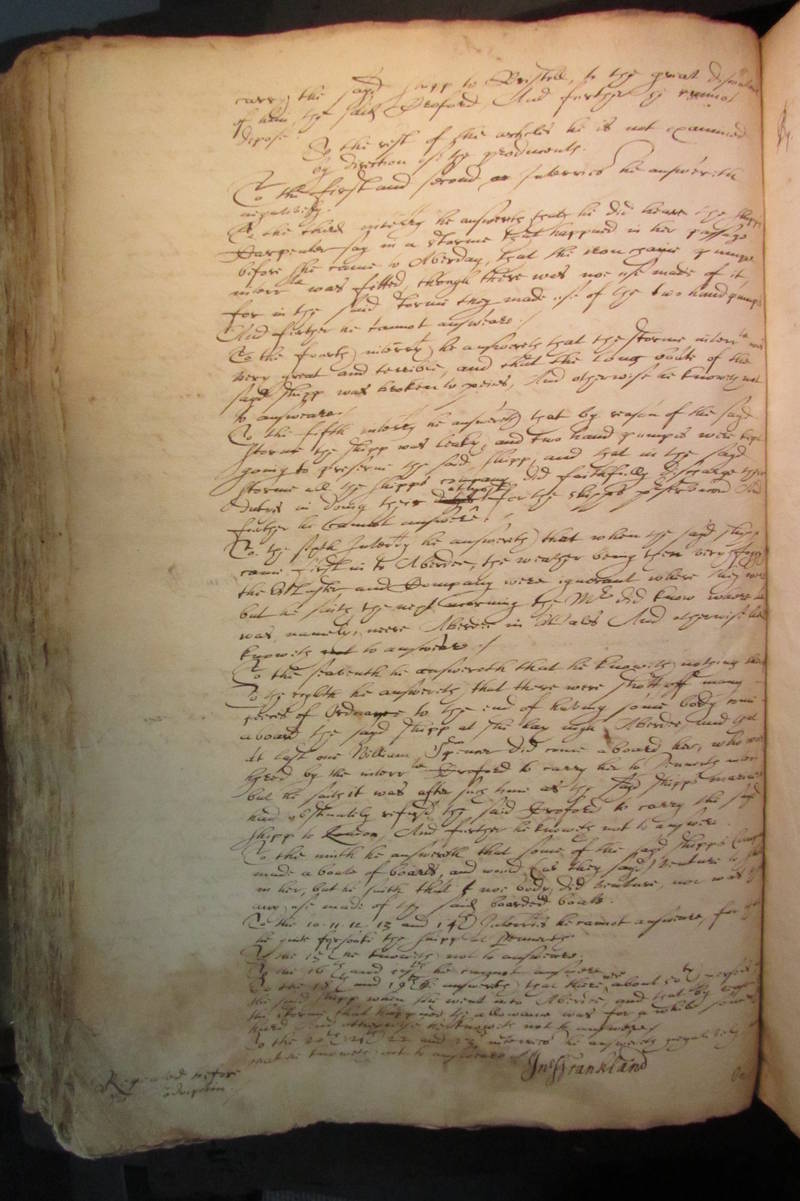 carry the sayd shipp to Bristoll, to the great
of him the said Stoford And further he cannot
depose
To the rest of the articles he is not examined
by direction of the producents.
To the first and second Interries he answereth
negatively.
To the third interry he answereth that he did heare the shipps
Carpenter say in a storme that happned in her passage
before she came to Aberday, that the iron chaine pumpe
interr was fitted, though there was noe use made of it,
for in the said storme they made use of the two hand pumps
And further he cannot answeare./
To the fourth interry he answereth that the storme interr was
very great and terrible, and that the long boate of the
sayd shipp was broken to peeces, And otherwise he knoweth not
to answeare./
To the fifth interry he answereth that by reason of the sayd
storme the shipp was leaky, and two hand pumpes were kept
going to preserve the said shipp, and that in the sayd
storme all the shipps company did faithfully discharge their
duties in doing their for the shipps preservation And
further he cannot answere./
To the sixth Interry he answereth that when the sayd shipp
came first in to Aberdee, the weather being then very
the Master and Company were ignorant where they were
but he saith the next morning the Mr did know where he
was, namely, neere Aberdee in Wales And otherwise hee
knoweth not to answeare./
To the seaventh he answereth that he knoweth nothing
To the eighth he answereth that there were shott off many
peeces of Ordnance to the end of having some body come
aboard the sayd shipp as she lay nigh Aberdee, and that
At last one William Spencer did come aboard her, who was
hyred by the interr Stoford to carry her to
but he saith it was after such time as the sayd shipps
had obstinately refused the said Stoford to carry the sayd
shipp to London, And further he knoweth not to answere.
To the ninth he answereth that some of the sayd shipps Company
made a boate of boards, and would (as they sayd) venture to
in her, but he saith that noe body did venture, nor was
any use made of the said boarded boate.
To the 10. 11. 12. 13 and 14th Interries he cannot answeare, for
he quite forsooke the shipp at
To the 15 he knoweth not to answeare,
To the 16th and 17th he cannot answere
To the 18th and 19th he answereth that there were about 50 persons
the said shipp when she went into Aberdee, and that by
the storme that happned the allowance was for a while
hard And otherwise he knoweth not to answeare/
To the 20th 21th 22 and 23 interries he answereth negatively
that he knoweth not to answeare
Jno Frankland
Repeated before